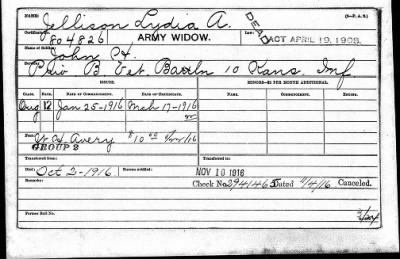 NAME: Jellison Lydia A. (3-P. A. 3.)
Certificate: 804826 ARMY WIDOW. Law: ACT APRIL 19, 1908. DEAD
Name of Soldier: John H.
Service: Priv B Vet. Battln 10 Kans. Inf
ISSUE. HONORS—$2 PER MONTH ADDITIONAL.
CLASS. RATE. DATE OF COMMENCEMENT. DATE OF CERTIFICATE. COMMENCEMENT. ISSUE.
Aug 12 Jan 25-1916 Mch 17-1916
W. H. Avery $10
GROUP 2
Transferred from: Transferred to:
Died: Oct 2-1916. Bureau notified: NOV 10 1916
Remarks: Check No. 3941465 Dated 11/4/16 Canceled.
Former Roll No.